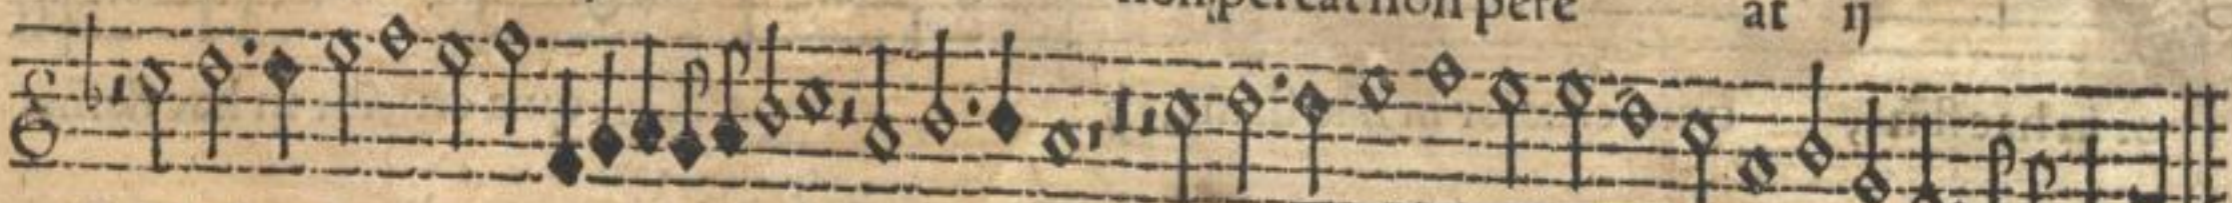 non pereat non pere at ij